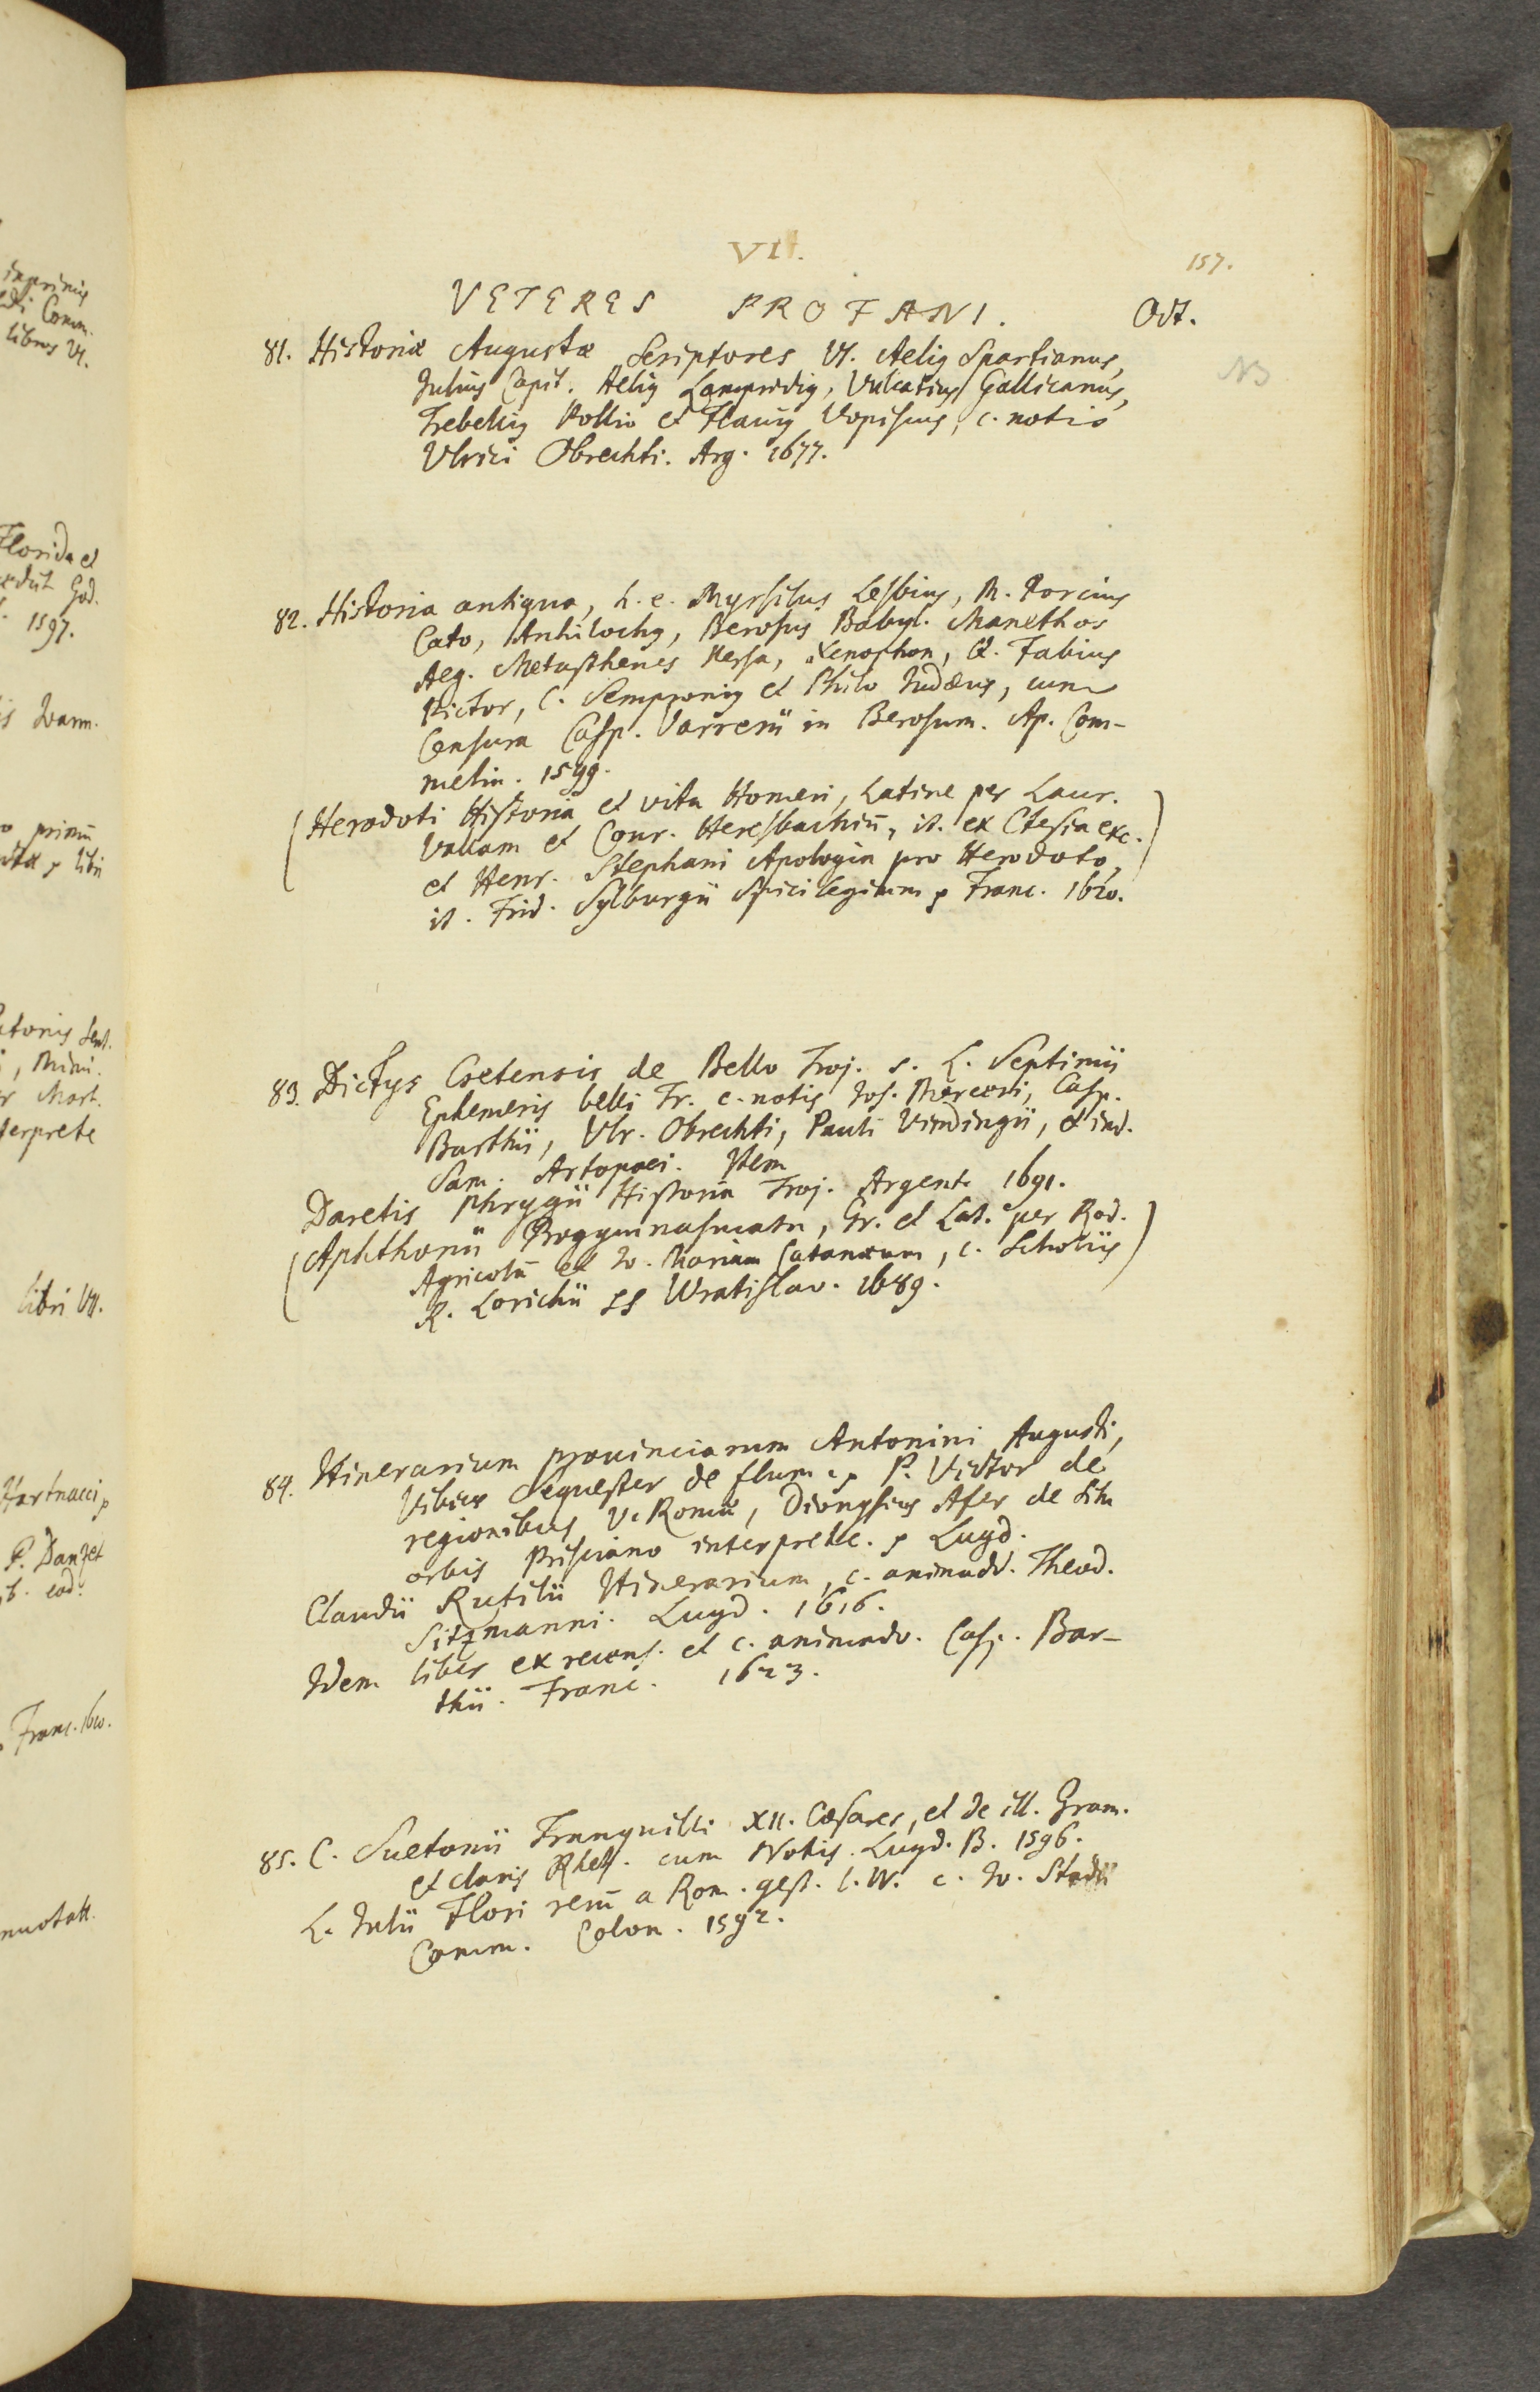 VII.
157.
VETERES PROFANI.
Oct.
NB
81. Historiæ Augustæ Scriptores VI. Aelig Spartianus,
Julius Capit. Aelig Lampridig, Vulcatius Gallicanus,
Trebellig Pollio et Flavig Vopiscus, c. notis
Ulrici Obrechti. Arg. 1677.
82. Historia antiqua, h. e. Myrsilus Lesbius, M. Porcius
Cato, Antilochg, Berosus Babyl. Manethos
Aeg. Metasthenes Persa, Xenophon, Q. Fabius
Pictor, C. Sempronig et Philo Judæus, cum
Censura Casp. Varrerii in Berosum. Ap. Com-
melin. 1599.
(Herodoti Historia et vita Homeri, Latine per Laur.
Vallam et Conr. Heresbachiū, it. ex Ctesia exc.
et Henr. Stephani Apologia pro Herodoto,
it. Frid. Sylburgii Spicilegium Franc. 1620.)
83. Dictys Cretensis de Bello Troj. s. L. Septimii
Ephemeris belli Tr. c. notis Jos. Merceri, Casp.
Barthii, Ulr. Obrechti, Pauli Vindingii, et ind.
Sam. Artopoei. Item
Daretis Phrygii Historia Troj. Argent. 1691.
(Aphthonii Progymnasmata, Gr. et Lat. per Rod.
Agricolā et Jo. Mariam Catanæum, c. Scholiis
R. Lorichii Wratislav. 1689.)
84. Itinerarium provinciarum Antonini Augusti,
Vibius Sequester de flum. P. Victor de
regionibus V. Romæ, Dionysius Afer de situ
orbis Prisciano interprete. Lugd.
Claudii Rutilii Itinerarium, c. animadv. Theod.
Sitzmanni. Lugd. 1616.
Idem liber ex recens. et c. animadv. Casp. Bar-
thii. Franc. 1623.
85. C. Suetonii Tranquilli XII. Cæsares, et de ill. Gram.
et claris Rhet. cum Notis. Lugd. B. 1596.
L. Julii Flori rerū a Rom. gest. l. IV. c. Jo. Stadii
Comm. Colon. 1592.